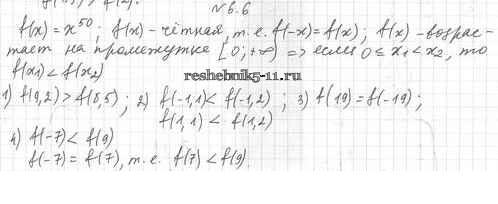 №6.6
f(x) = x^50; f(x) - чётная, т.е. f(-x) = f(x); f(x) - возрас-
тает на промежутке [0; +∞) => если 0 ≤ x₁ < x₂, то
f(x₁) < f(x₂)
reshebnik5-11.ru
1) f(9,2) > f(8,5); 2) f(-1,1) < f(-1,2); 3) f(19) = f(-19);
f(1,1) < f(1,2)
4) f(-7) < f(9)
f(-7) = f(7), т.е. f(7) < f(9).